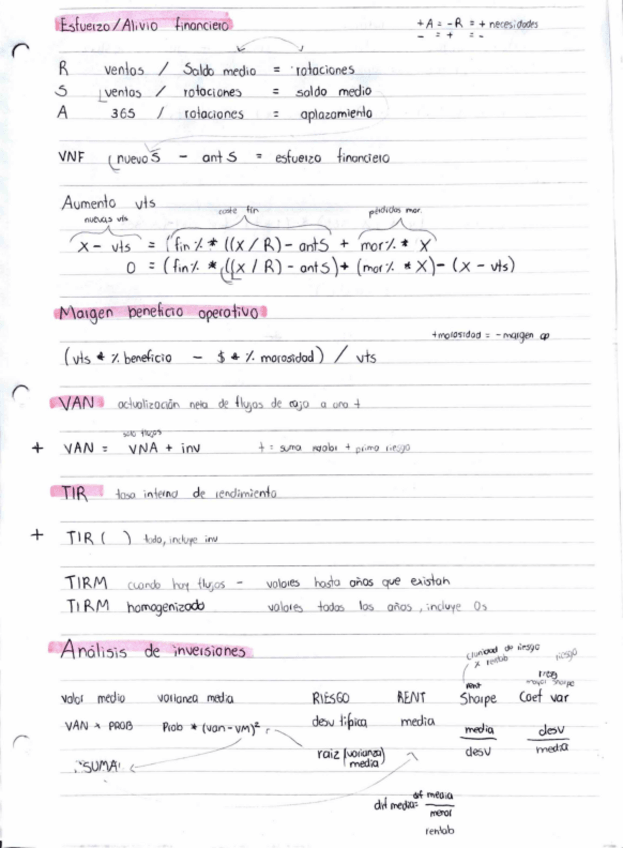 Esfuerzo/Alivio financiero
+A = -R = + necesidades
- = + = -
R ventas / Saldo medio = rotaciones
S ventas / rotaciones = saldo medio
A 365 / rotaciones = aplazamiento
VNF (nuevo S - ant S = esfuerzo financiero
Aumento vts
nuevas vts coste fin pérdidas mor.
X - vts = (fin% * ((X / R) - antS + mor% * X
0 = (fin% * ((X / R) - antS) + (mor% * X) - (X - vts)
Margen beneficio operativo
+morosidad = - margen op
(vts * % beneficio - $ * % morosidad) / vts
VAN actualización neta de flujos de caja a una t
solo flujos
+ VAN = VNA + inv t = suma + prima riesgo
TIR tasa interna de rendimiento
+ TIR ( ) todo, incluye inv
TIRM cuando hay flujos - valores hasta años que existan
TIRM homogenizado valores todos los años, incluye 0s
Análisis de inversiones
riesgo
x rentab
riesgo
mayor sharpe
rent
valor medio varianza media RIESGO RENT Sharpe Coef var
VAN * PROB Prob * (van-VM)² desv típica media media / desv desv / media
raiz (varianza media)
SUMA
dif media = dif media / menor
rentab